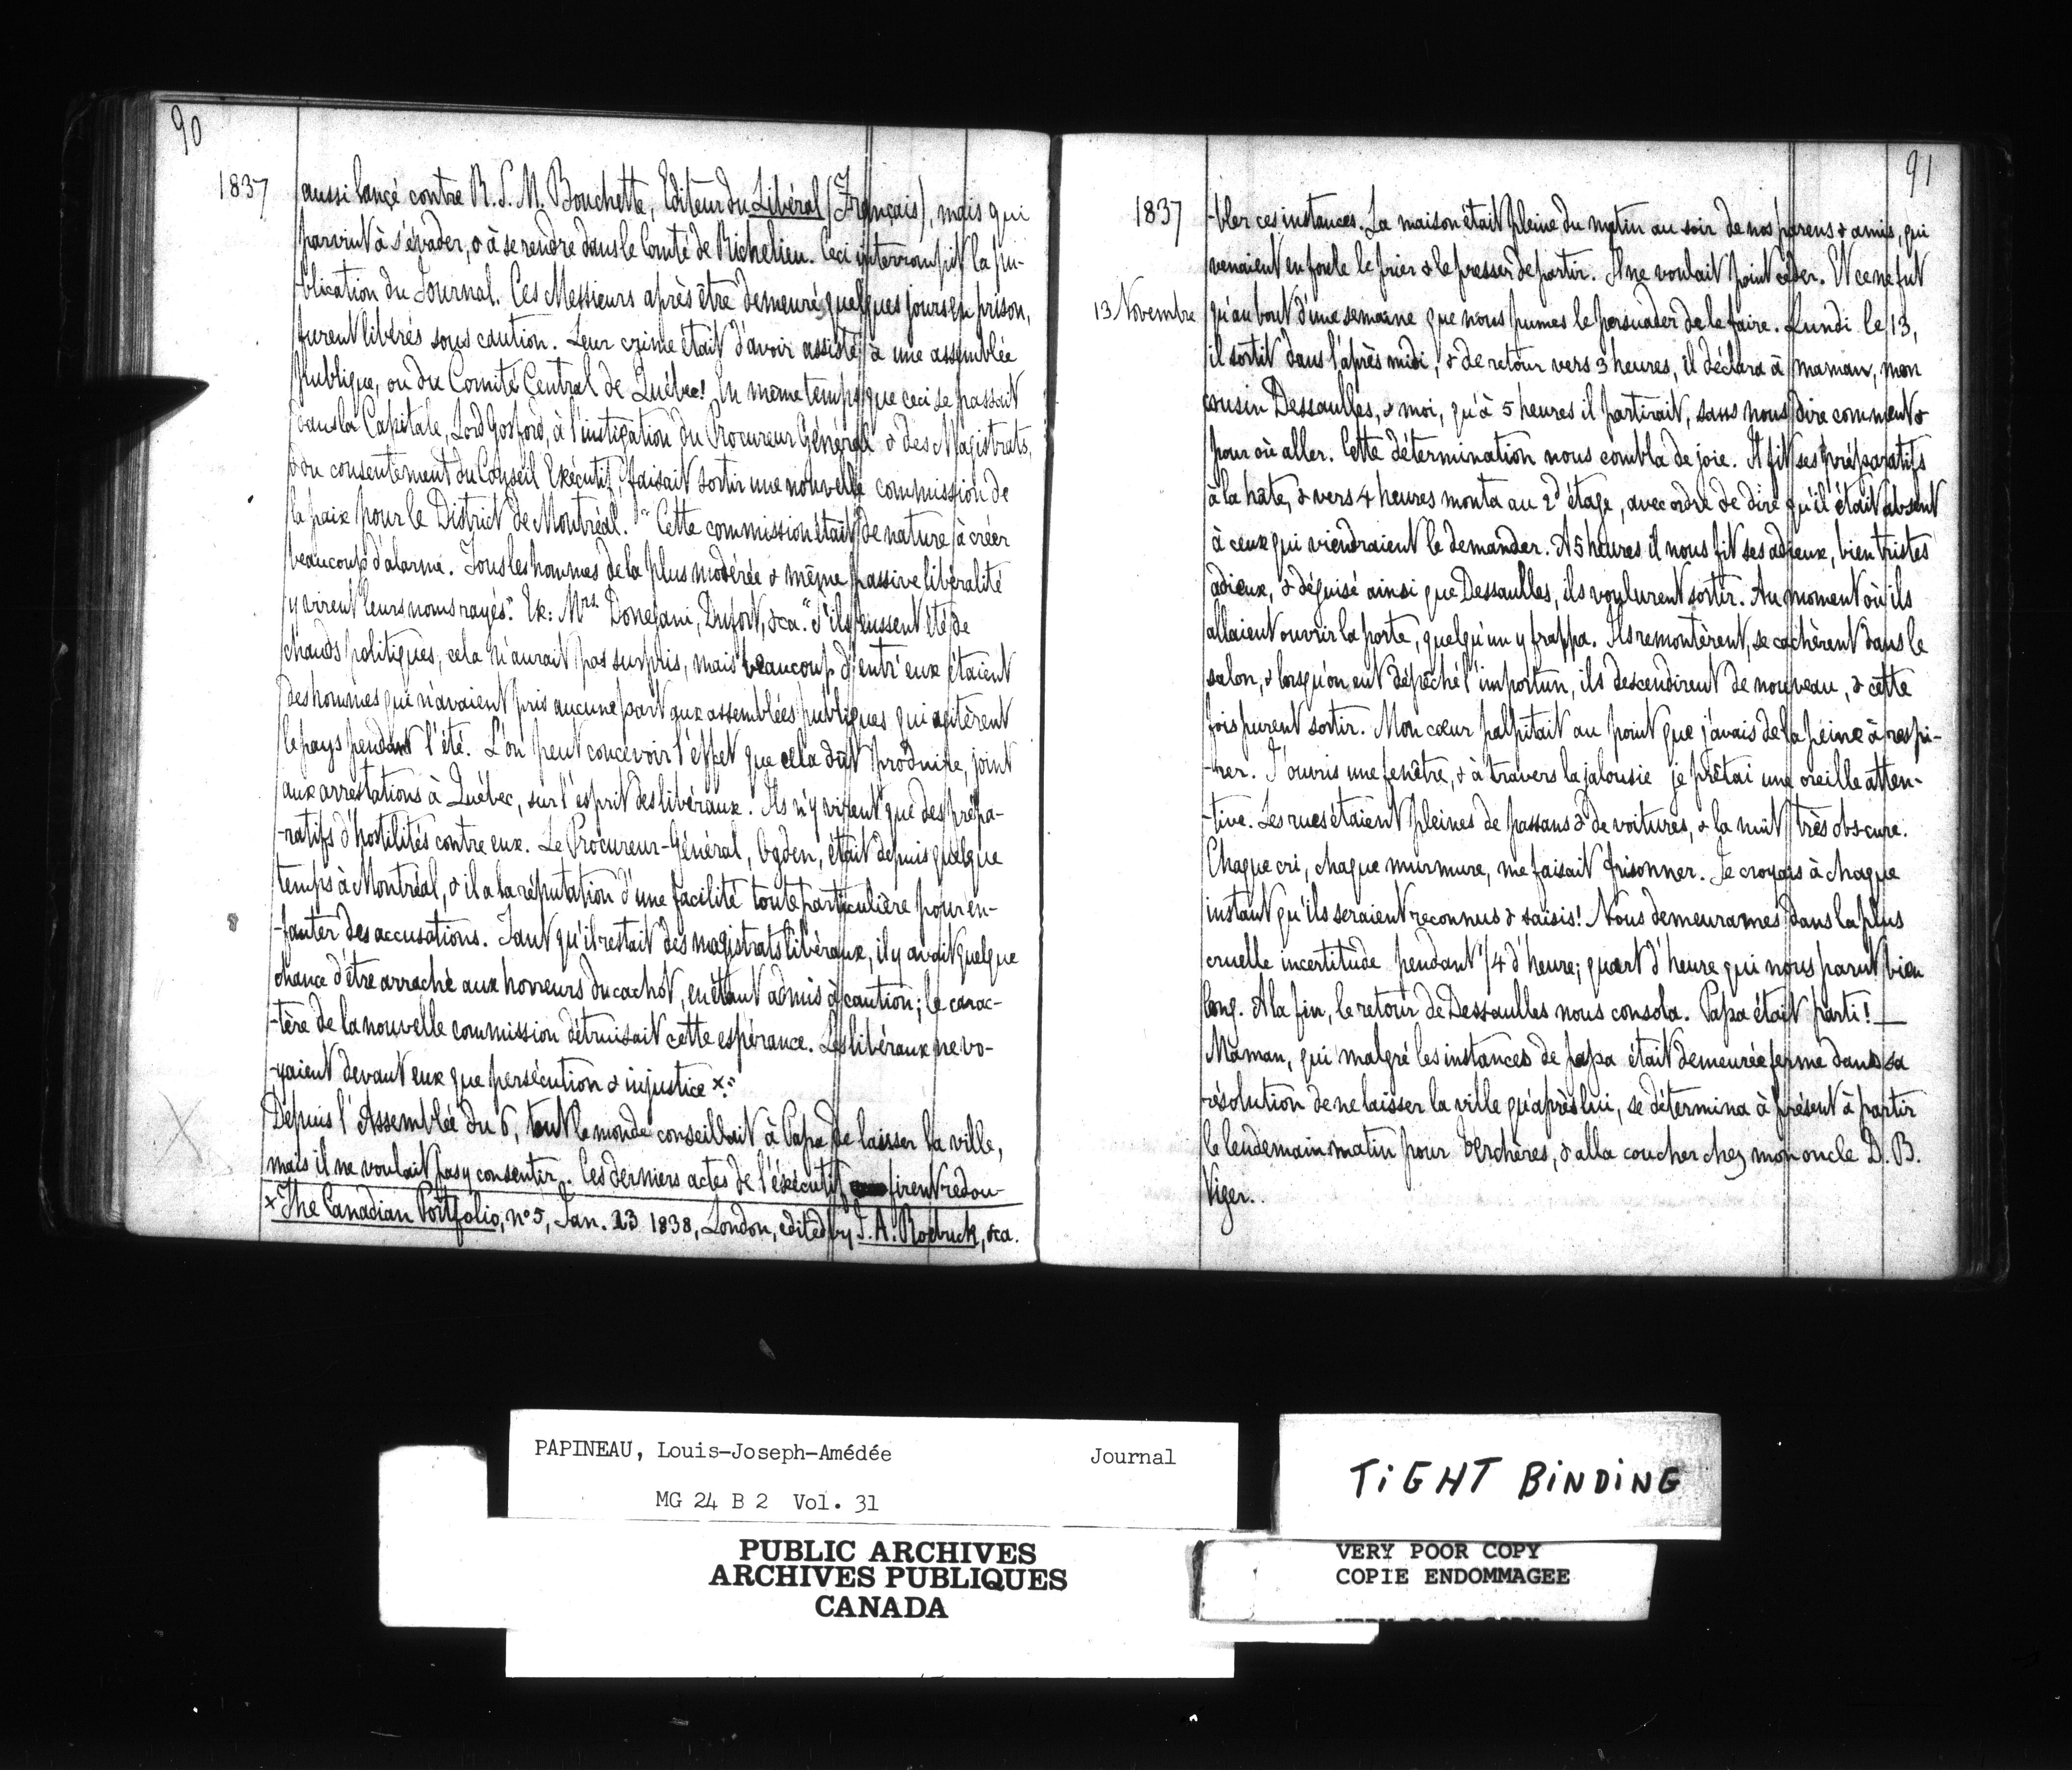 90
1837
aussi lançé contre R. S. M. Bouchette, Editeur du Libéral (Français), mais qui
parvint à s'évader, & à se rendre dans le Comté de Richelieu. Ceci interrompit la pu-
-blication du Journal. Ces Messieurs après être demeuré quelques jours en prison,
furent libérés sous caution. Leur crime était d'avoir assisté à une assemblée
publique, ou du Comité Central de Québec! En même temps que ceci se passait
dans la Capitale, Lord Gosford, à l'instigation du Procureur Général & des Magistrats,
& du consentement du Conseil Exécutif, faisait sortir une nouvelle commission de
la paix pour le District de Montréal. "Cette commission était de nature à créer
beaucoup d'alarme. Tous les hommes de la plus modérée & même passive libéralité
y virent leurs noms rayés". Ex: Mrs. Donegani, Dufort, &ca. "S'ils eussent été de
chauds politiques, cela n'aurait pas surpris, mais beaucoup d'entr'eux étaient
des hommes qui n'avaient pris aucune part aux assemblées publiques qui agitèrent
le pays pendant l'été. L'on peut concevoir l'effet que cela dût produire, joint
aux arrestations à Québec, sur l'esprit des libéraux. Ils n'y virent que des prépa-
-ratifs d'hostilités contre eux. Le Procureur-Général, Ogden, était depuis quelque
temps à Montréal, & il a la réputation d'une facilité toute particulière pour en-
-fanter des accusations. Tant qu'il restait des magistrats libéraux, il y avait quelque
chance d'être arraché aux horreurs du cachot, en étant admis à caution; le carac-
-tère de la nouvelle commission détruisait cette espérance. Les libéraux ne vo-
-yaient devant eux que persécution & injustice x."
Depuis l'Assemblée du 6, tout le monde conseillait à Papa de laisser la ville,
mais il ne voulait pas y consentir. Ces derniers actes de l'éxécutif firent redou-
x The Canadian Portfolio, no 5, Jan. 23 1838, London, edited by J. A. Roebuck, &ca.
91
1837
-bler ces instances. La maison était pleine du matin au soir de nos parens & amis, qui
venaient en foule le prier & le presser de partir. Il ne voulait point céder. Et ce ne fut
13 Novembre
qu'au bout d'une semaine que nous pumes le persuader de le faire. Lundi le 13,
il sortit dans l'après midi, & de retour vers 3 heures, il déclara à maman, mon
cousin Dessaulles, & moi, qu'à 5 heures il partirait, sans nous dire comment &
pour où aller. Cette détermination nous combla de joie. Il fit ses préparatifs
à la hâte, & vers 4 heures monta au 2d étage, avec ordre de dire qu'il était absent
à ceux qui viendraient le demander. A 5 heures il nous fit ses adieux, bien tristes
adieux, & déguisé ainsi que Dessaulles, ils voulurent sortir. Au moment où ils
allaient ouvrir la porte, quelqu'un y frappa. Ils remontèrent, se cachèrent dans le
salon, & lorsqu'on eut dépêché l'importun, ils descendirent de nouveau, & cette
fois purent sortir. Mon cœur palpitait au point que j'avais de la peine à respi-
-rer. J'ouvris une fenêtre, & à travers la jalousie je prêtai une oreille atten-
-tive. Les rues étaient pleines de passans & de voitures, & la nuit très obscure.
Chaque cri, chaque murmure, me faisait frisonner. Je croyais à chaque
instant qu'ils seraient reconnus & saisis! Nous demeurames dans la plus
cruelle incertitude pendant 1/4 d'heure; quart d'heure qui nous parut bien
long. A la fin, le retour de Dessaulles nous consola. Papa était parti! —
Maman, qui malgré les instances de papa était demeurée ferme dans sa
résolution de ne laisser la ville qu'après lui, se détermina à présent à partir
le lendemain matin pour Verchères, & alla coucher chez mon oncle D. B.
Viger.
PAPINEAU, Louis-Joseph-Amédée Journal
MG 24 B 2 Vol. 31
PUBLIC ARCHIVES
ARCHIVES PUBLIQUES
CANADA
TIGHT BINDING
VERY POOR COPY
COPIE ENDOMMAGEE
VERY POOR COPY